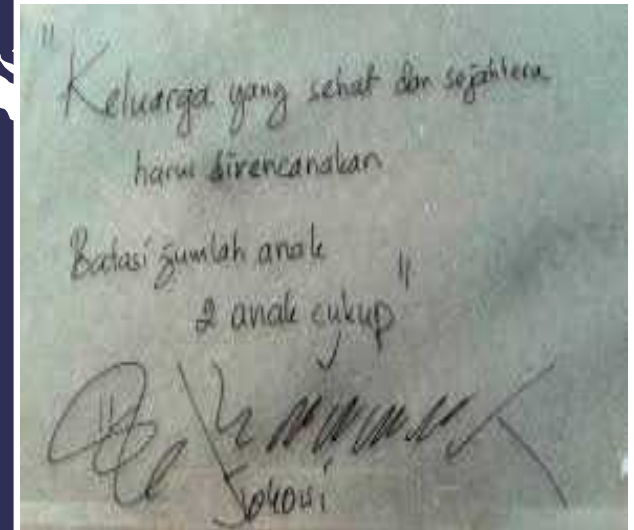 "Keluarga yang sehat dan sejahtera
harus direncanakan
Batasi jumlah anak
2 anak cukup"
Jokowi